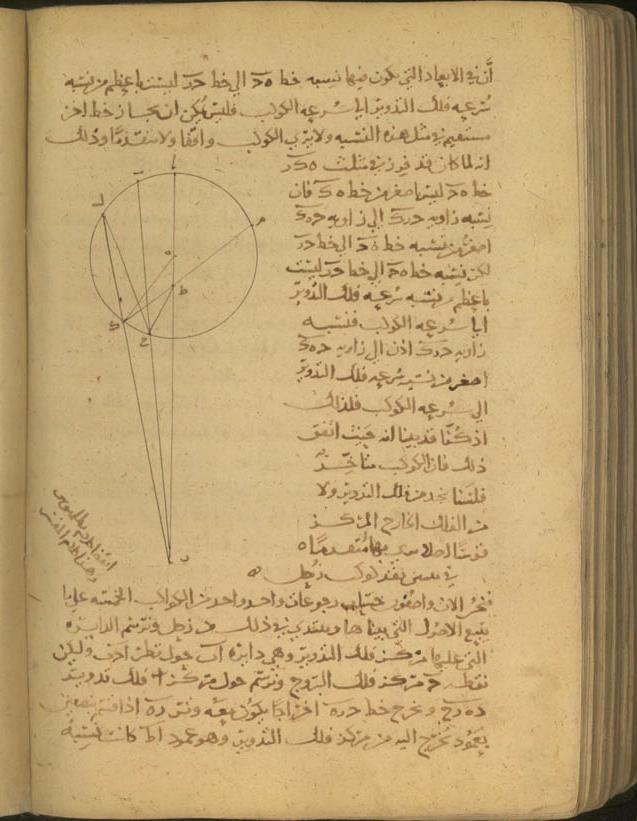 أن في الابعاد التي يكون فيها نسبه خط ه ح الي خط ح ر ليست باعظم من نسبه
سرعه فلك التدوير الي سرعه الكوكب فليس يمكن ان يجاز خط اخر
مستقيم في مثل هذه النسبه ولا يري الكوكب واقفا ولا متقدما وذلك
انه لما كان قد فرز في مثلث ه ك ر
خط ه ح ليس اصغر من خط ه ك فان
نسبه زاويه ح ر ك الي زاويه ح ه ك
اصغر من نسبه خط ه ح الي خط ح ر
لكن نسبه خط ه ح الي خط ح ر ليست
باعظم من نسبه سرعه فلك التدوير
الي سرعه الكوكب فنسبه
زاويه ح ر ك اذن الي زاويه ح ه ك
اصغر من نسبه سرعه فلك التدوير
الي سرعه الكوكب فلذلك
اذ كنا قد بينا انه حيث اتفق
ذلك فان الكوكب متاخر
فلسنا نجد من فلك التدوير ولا
من الفلك الخارج المركز
قوسا اصلا يري بها متقدما
في تقهقر كوكب زحل
فنحن الان واصفون رجوعات واحد واحد من الكواكب الخمسه علي ما
يتبع الاصول التي بيناها ومبتدي في ذلك من زحل ونرسم الدايره
التي عليها مركز فلك التدوير وهي دايره اب حول قطر وليكن
نقطه مركز فلك البروج ونرسم حول مركز ا فلك تدوير
ده رح ونخرج خط ح ر ه اخراجا يكون معه وتر ر ه اذا قسم بنصفين
بعمود يخرج اليه من مركز فلك التدوير وهو عمود ا ط كانت نسبه